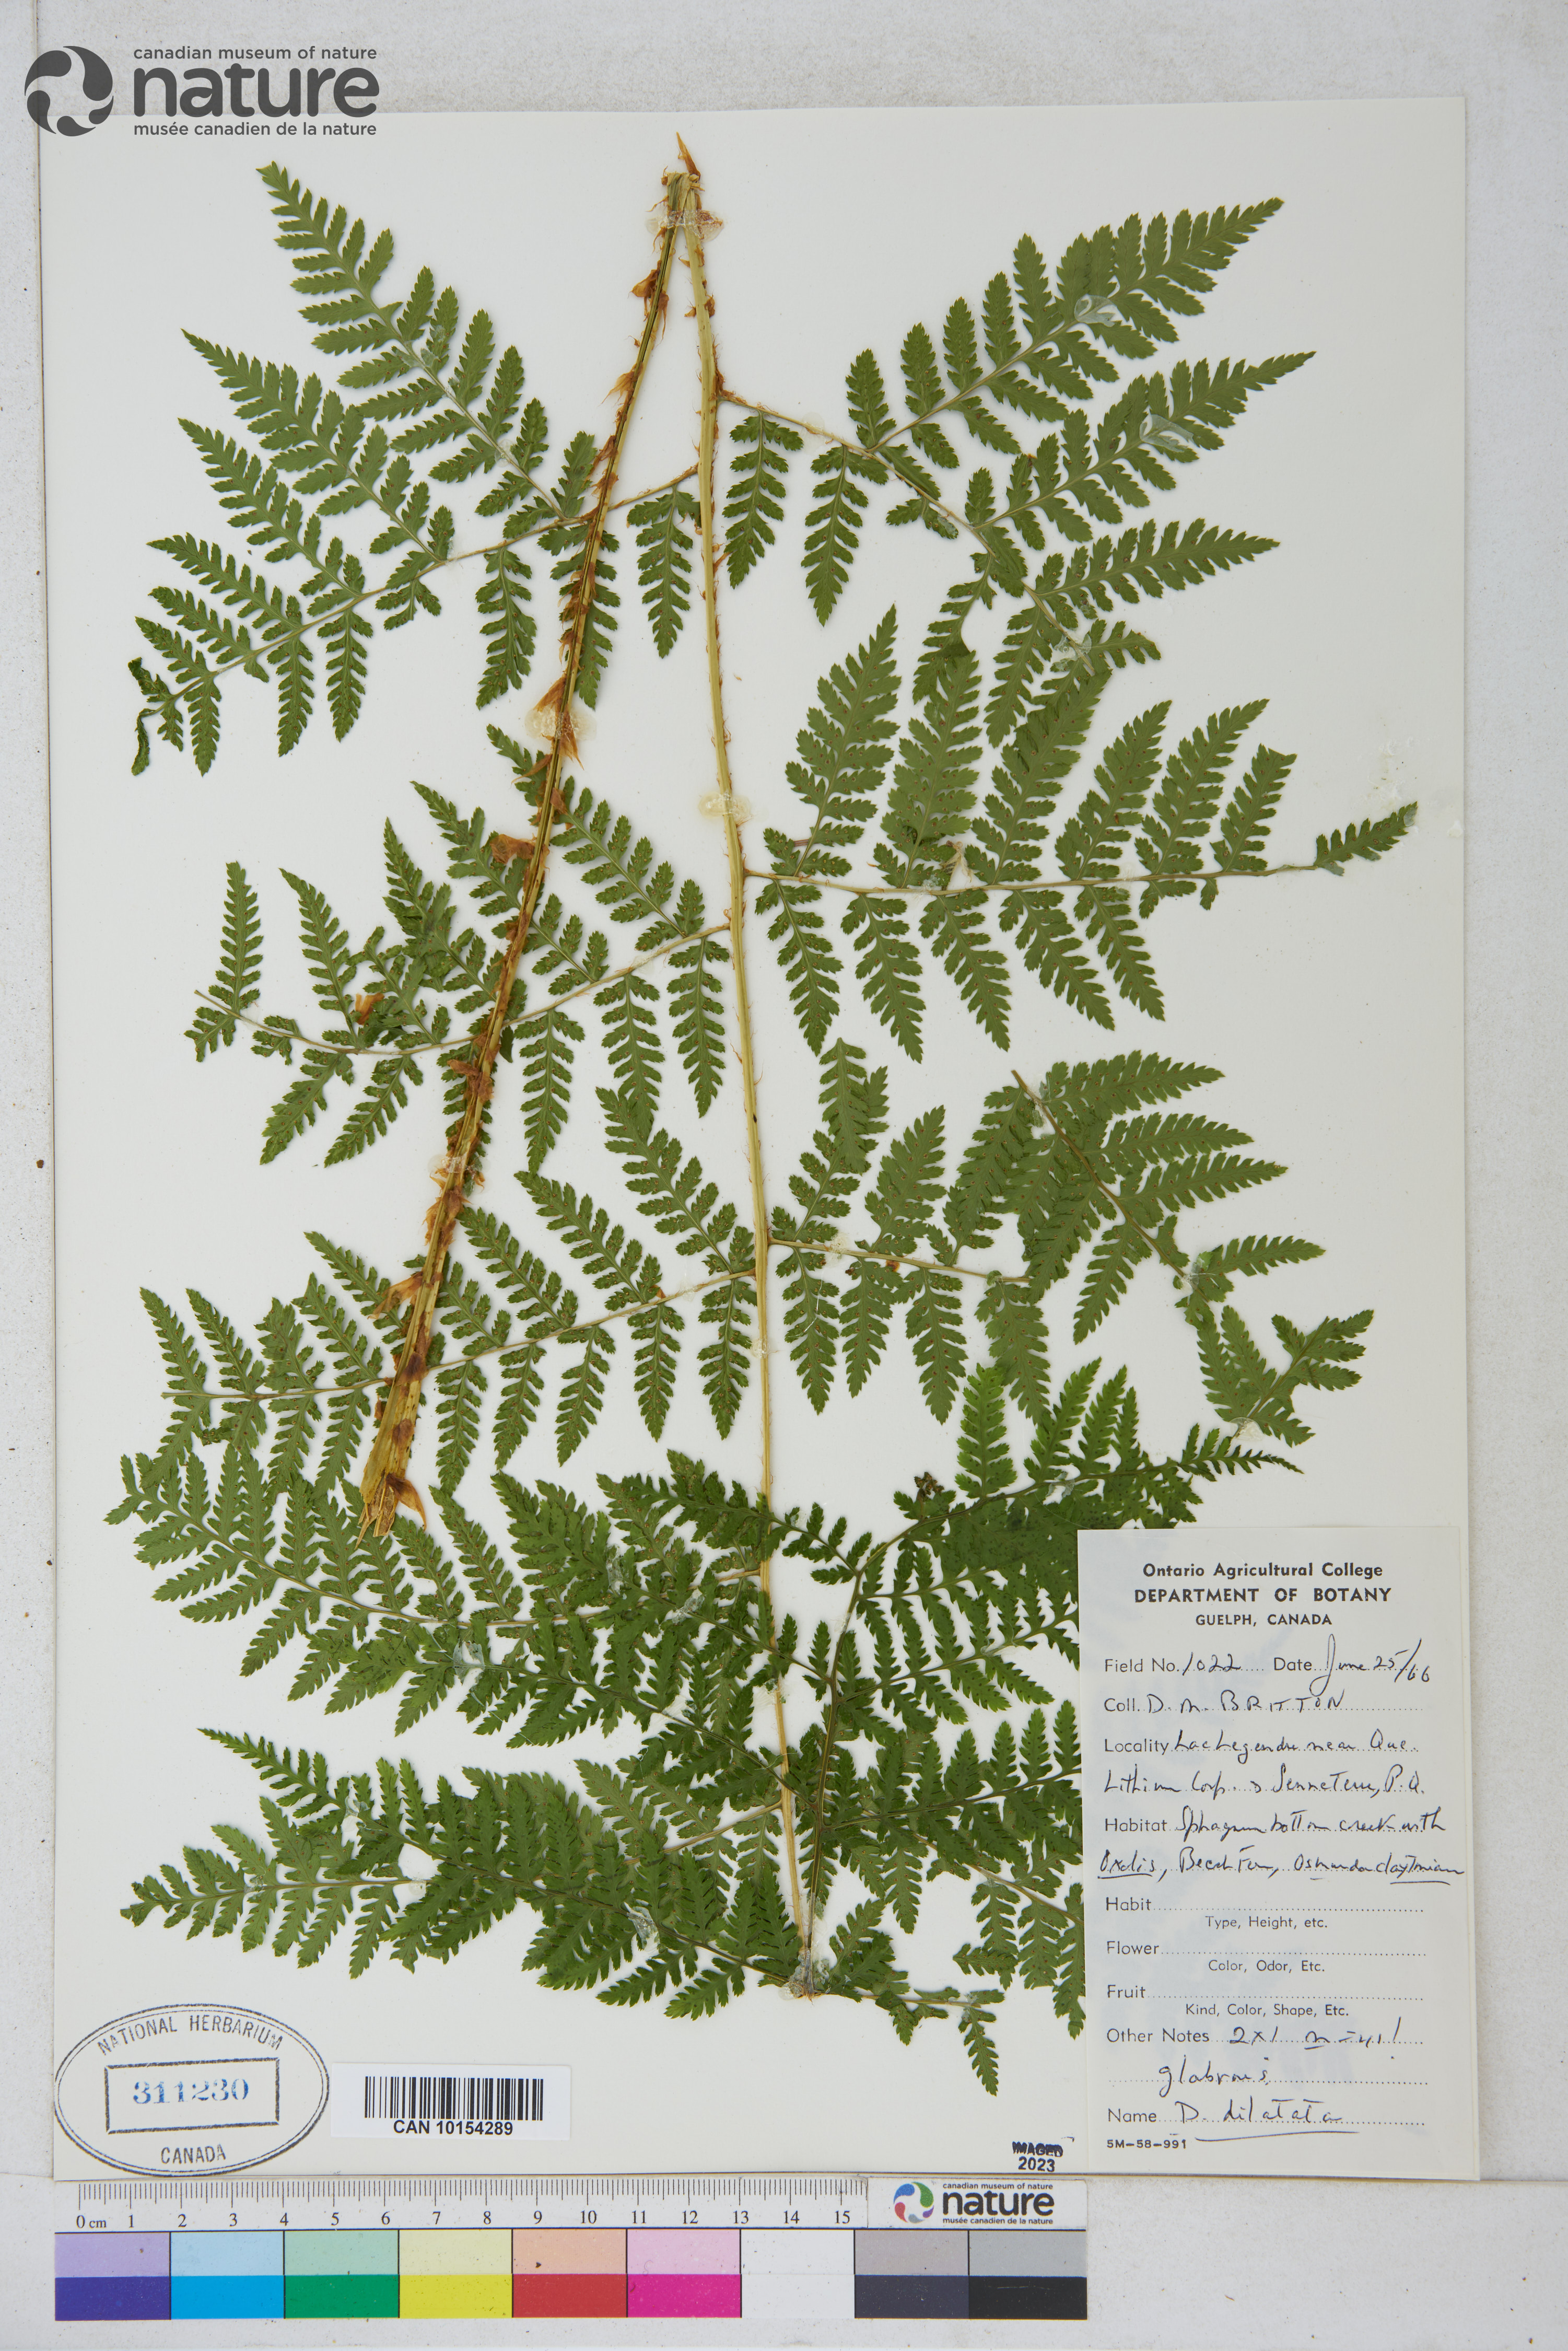 canadian museum of nature
nature
musée canadien de la nature
Ontario Agricultural College
DEPARTMENT OF BOTANY
GUELPH, CANADA
Field No. 1022 Date June 25/66
Coll. D. M. BRITTON
Locality Lac Legendre near Que.
Lithium Corp. Senneterre, P.Q.
Habitat Sphagnum bottom creek with
Oxalis, Beech Fern, Osmunda claytoniana
Habit
Type, Height, etc.
Flower
Color, Odor, Etc.
Fruit
Kind, Color, Shape, Etc.
Other Notes 2x1 n=41!
glabrous
Name D. dilatata
5M-58-991
NATIONAL HERBARIUM
311230
CANADA
CAN 10154289
IMAGED
2023
0 cm 1 2 3 4 5 6 7 8 9 10 11 12 13 14 15
canadian museum of nature
nature
musée canadien de la nature